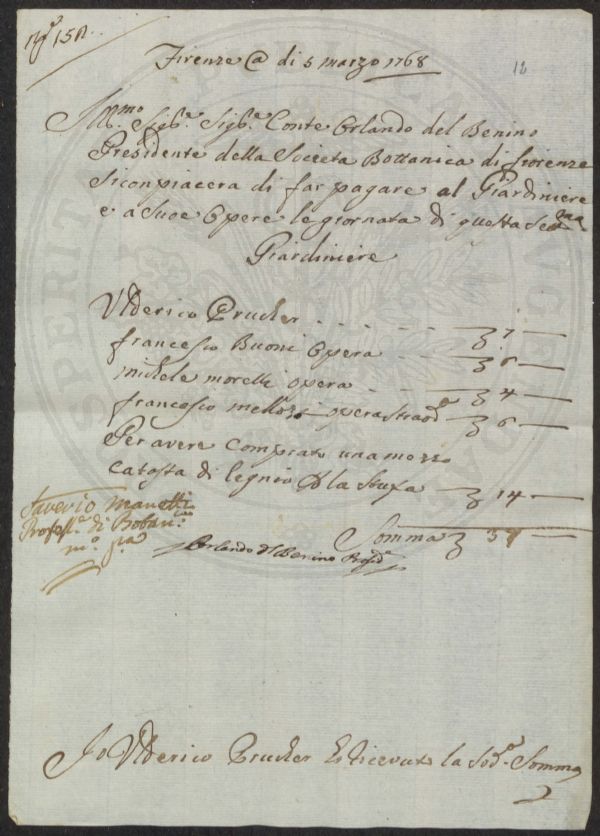 N.º 151.
12
Firenze @ di 5 marzo 1768
Ill.mo Sig.re Sig.re Conte Orlando del Benino
Presidente della Societa Bottanica di fiorenze
Siconpiacera di far pagare al Giardiniere
e a Suoe Opere le giornata di questa Setma
Giardiniere
Ulderico Prucker . . . . . 7 —
francesco Buoni Opera . . . 6 —
michele morelli opera . . 4 —
francesco mellozi operastraod.a 6 —
Per avere comprato una mezzo
catasta di legnio p la Stufa 14 —
Somma 37 —
Saverio Manetti
Profess.e di Botan.ca
m.o p.a
Orlando del Benino Presid.e
Io Ulderico Prucker o ricevuto la Sod.a Somma
SPERITA
AUGENDAE